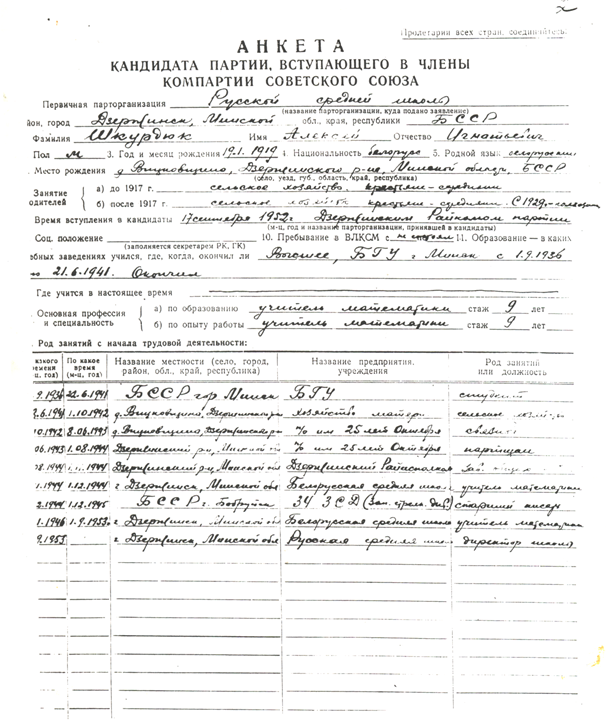 Пролетарии всех стран, соединяйтесь!
АНКЕТА
КАНДИДАТА ПАРТИИ, ВСТУПАЮЩЕГО В ЧЛЕНЫ
КОМПАРТИИ СОВЕТСКОГО СОЮЗА
Первичная парторганизация Русской средней школы
(название парторганизации, куда подано заявление)
йон, город Дзержинск, Минской обл., край, республики БССР
Фамилия Шкурдюк Имя Алексей Отчество Игнатьевич
Пол м 3. Год и месяц рождения 19.1.1919 4. Национальность белорус 5. Родной язык белорусский
Место рождения д. Вицковщина, Дзержинского р-на, Минской области, БССР
(село, уезд, губ., область, край, республика)
Занятие одителей а) до 1917 г. сельское хозяйство, крестьяне-середняки
б) после 1917 г. сельское хозяйство крестьяне-середняки. С 1929
Время вступления в кандидаты 17 сентября 1952. Дзержинским Райкомом партии
(м-ц, год и название парторганизации, принявшей в кандидаты)
Соц. положение 10. Пребывание в ВЛКСМ с не состоял 11. Образование — в каких
(заполняется секретарем РК, ГК)
ебных заведениях учился, где, когда, окончил ли Высшее, БГУ г. Минск с 1.9.1936
по 21.6.1941. Окончил
Где учится в настоящее время
Основная профессия и специальность а) по образованию учитель математики стаж 9 лет
б) по опыту работы учитель математики стаж 9 лет
Род занятий с начала трудовой деятельности:
акого времени ц, год) По какое время (м-ц, год) Название местности (село, город, район, обл., край, республика) Название предприятия, учреждения Род занятий или должность
9.1936 22.6.1941 БССР гор. Минск БГУ студент
2.6.1941 1.10.1942 д. Вицковщина, Дзержинск. р-на хозяйство матери сельское хозяйство
10.1942 8.06.1943 д. Вицковщина, Дзержинск. р-на п/о им 25 лет Октября связной
06.1943 1.08.1944 Дзержинский р-н, Минской обл п/о им 25 лет Октября партизан
08.1944 1944 Дзержинский р-н, Минской обл Дзержинский Райисполком
1.1944 1.12.1944 г. Дзержинск, Минской обл. Белорусская средняя школа учитель математики
2.1944 1.12.1945 БССР г. Бобруйск 34 ЗСД (зап. стрел. див.) старший писарь
1.1946 1.9.1953 г. Дзержинск, Минской обл Белорусская средняя школа учитель математики
9.1953 г. Дзержинск, Минской обл Русская средняя школа директор школы